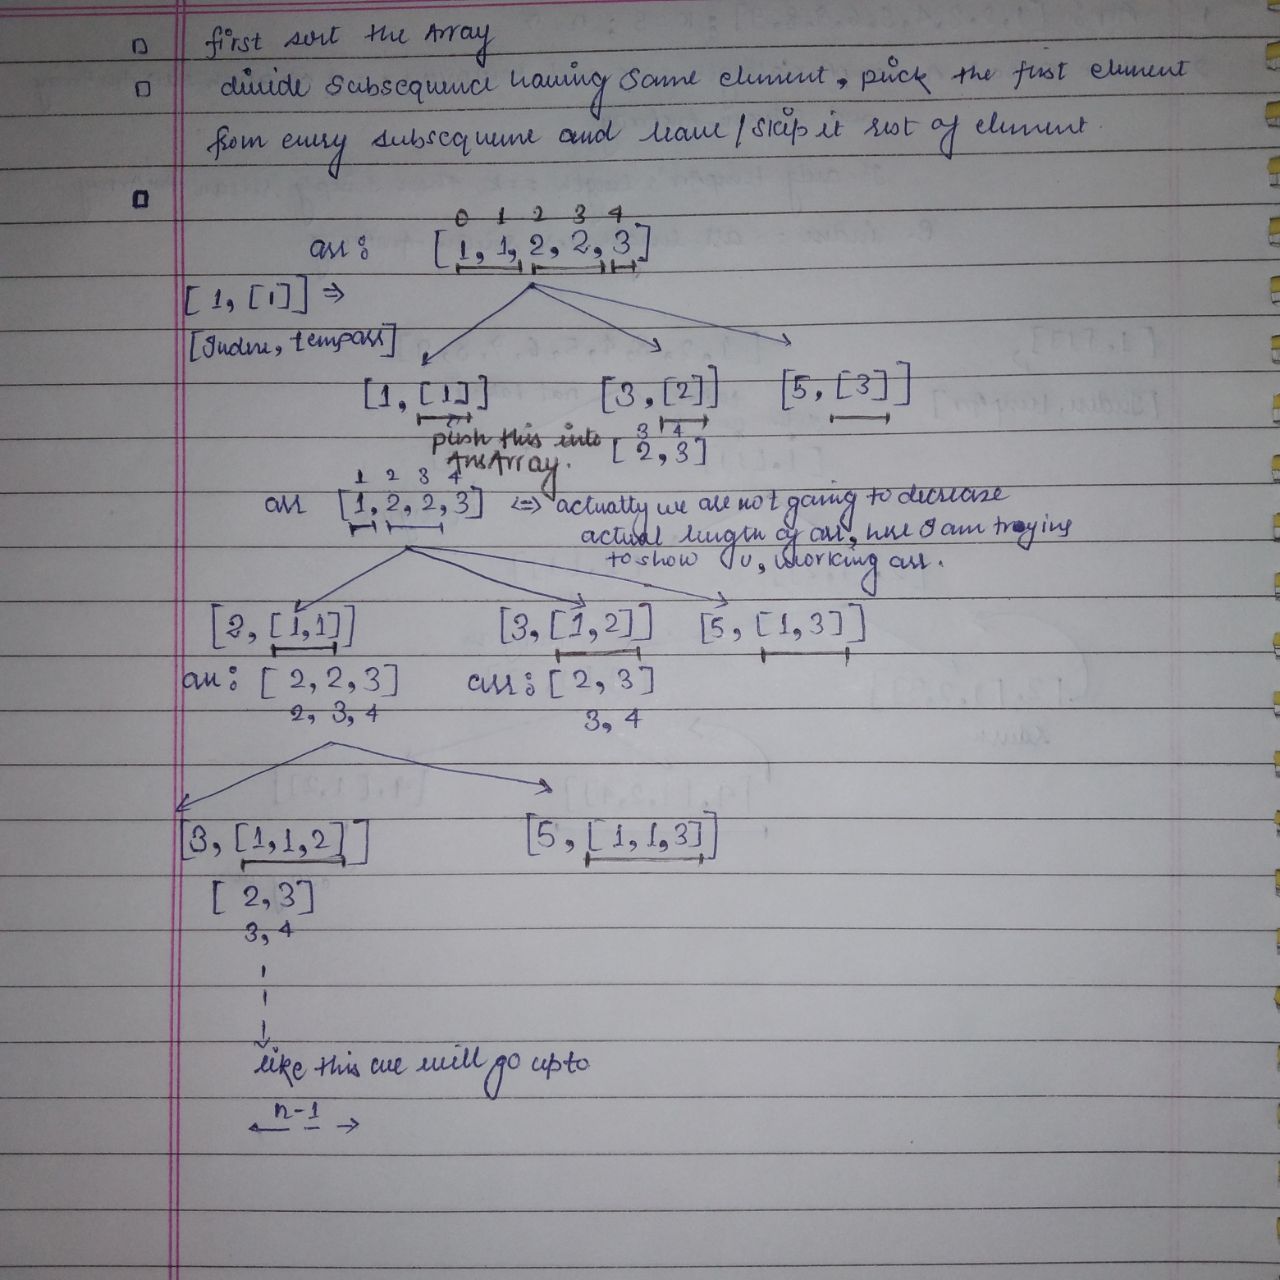 first sort the Array
divide Subsequence having Same element, pick the first element
from every subsequence and leave / skip it rest of element.
0 1 2 3 4
arr: [1, 1, 2, 2, 3]
[1, [1]] ⇒
[Index, temparr]
[1, [1]] [3, [2]] [5, [3]]
push this into
AnsArray.
3 4
[2, 3]
1 2 3 4
arr [1, 2, 2, 3] ⇔ actually we are not going to decrease
actual length of arr, here I am trying
to show u, working arr.
[2, [1,1]] [3, [1,2]] [5, [1,3]]
arr: [2, 2, 3] arr: [2, 3]
2, 3, 4 3, 4
[3, [1,1,2]] [5, [1,1,3]]
[2, 3]
3, 4
like this we will go upto
n-1